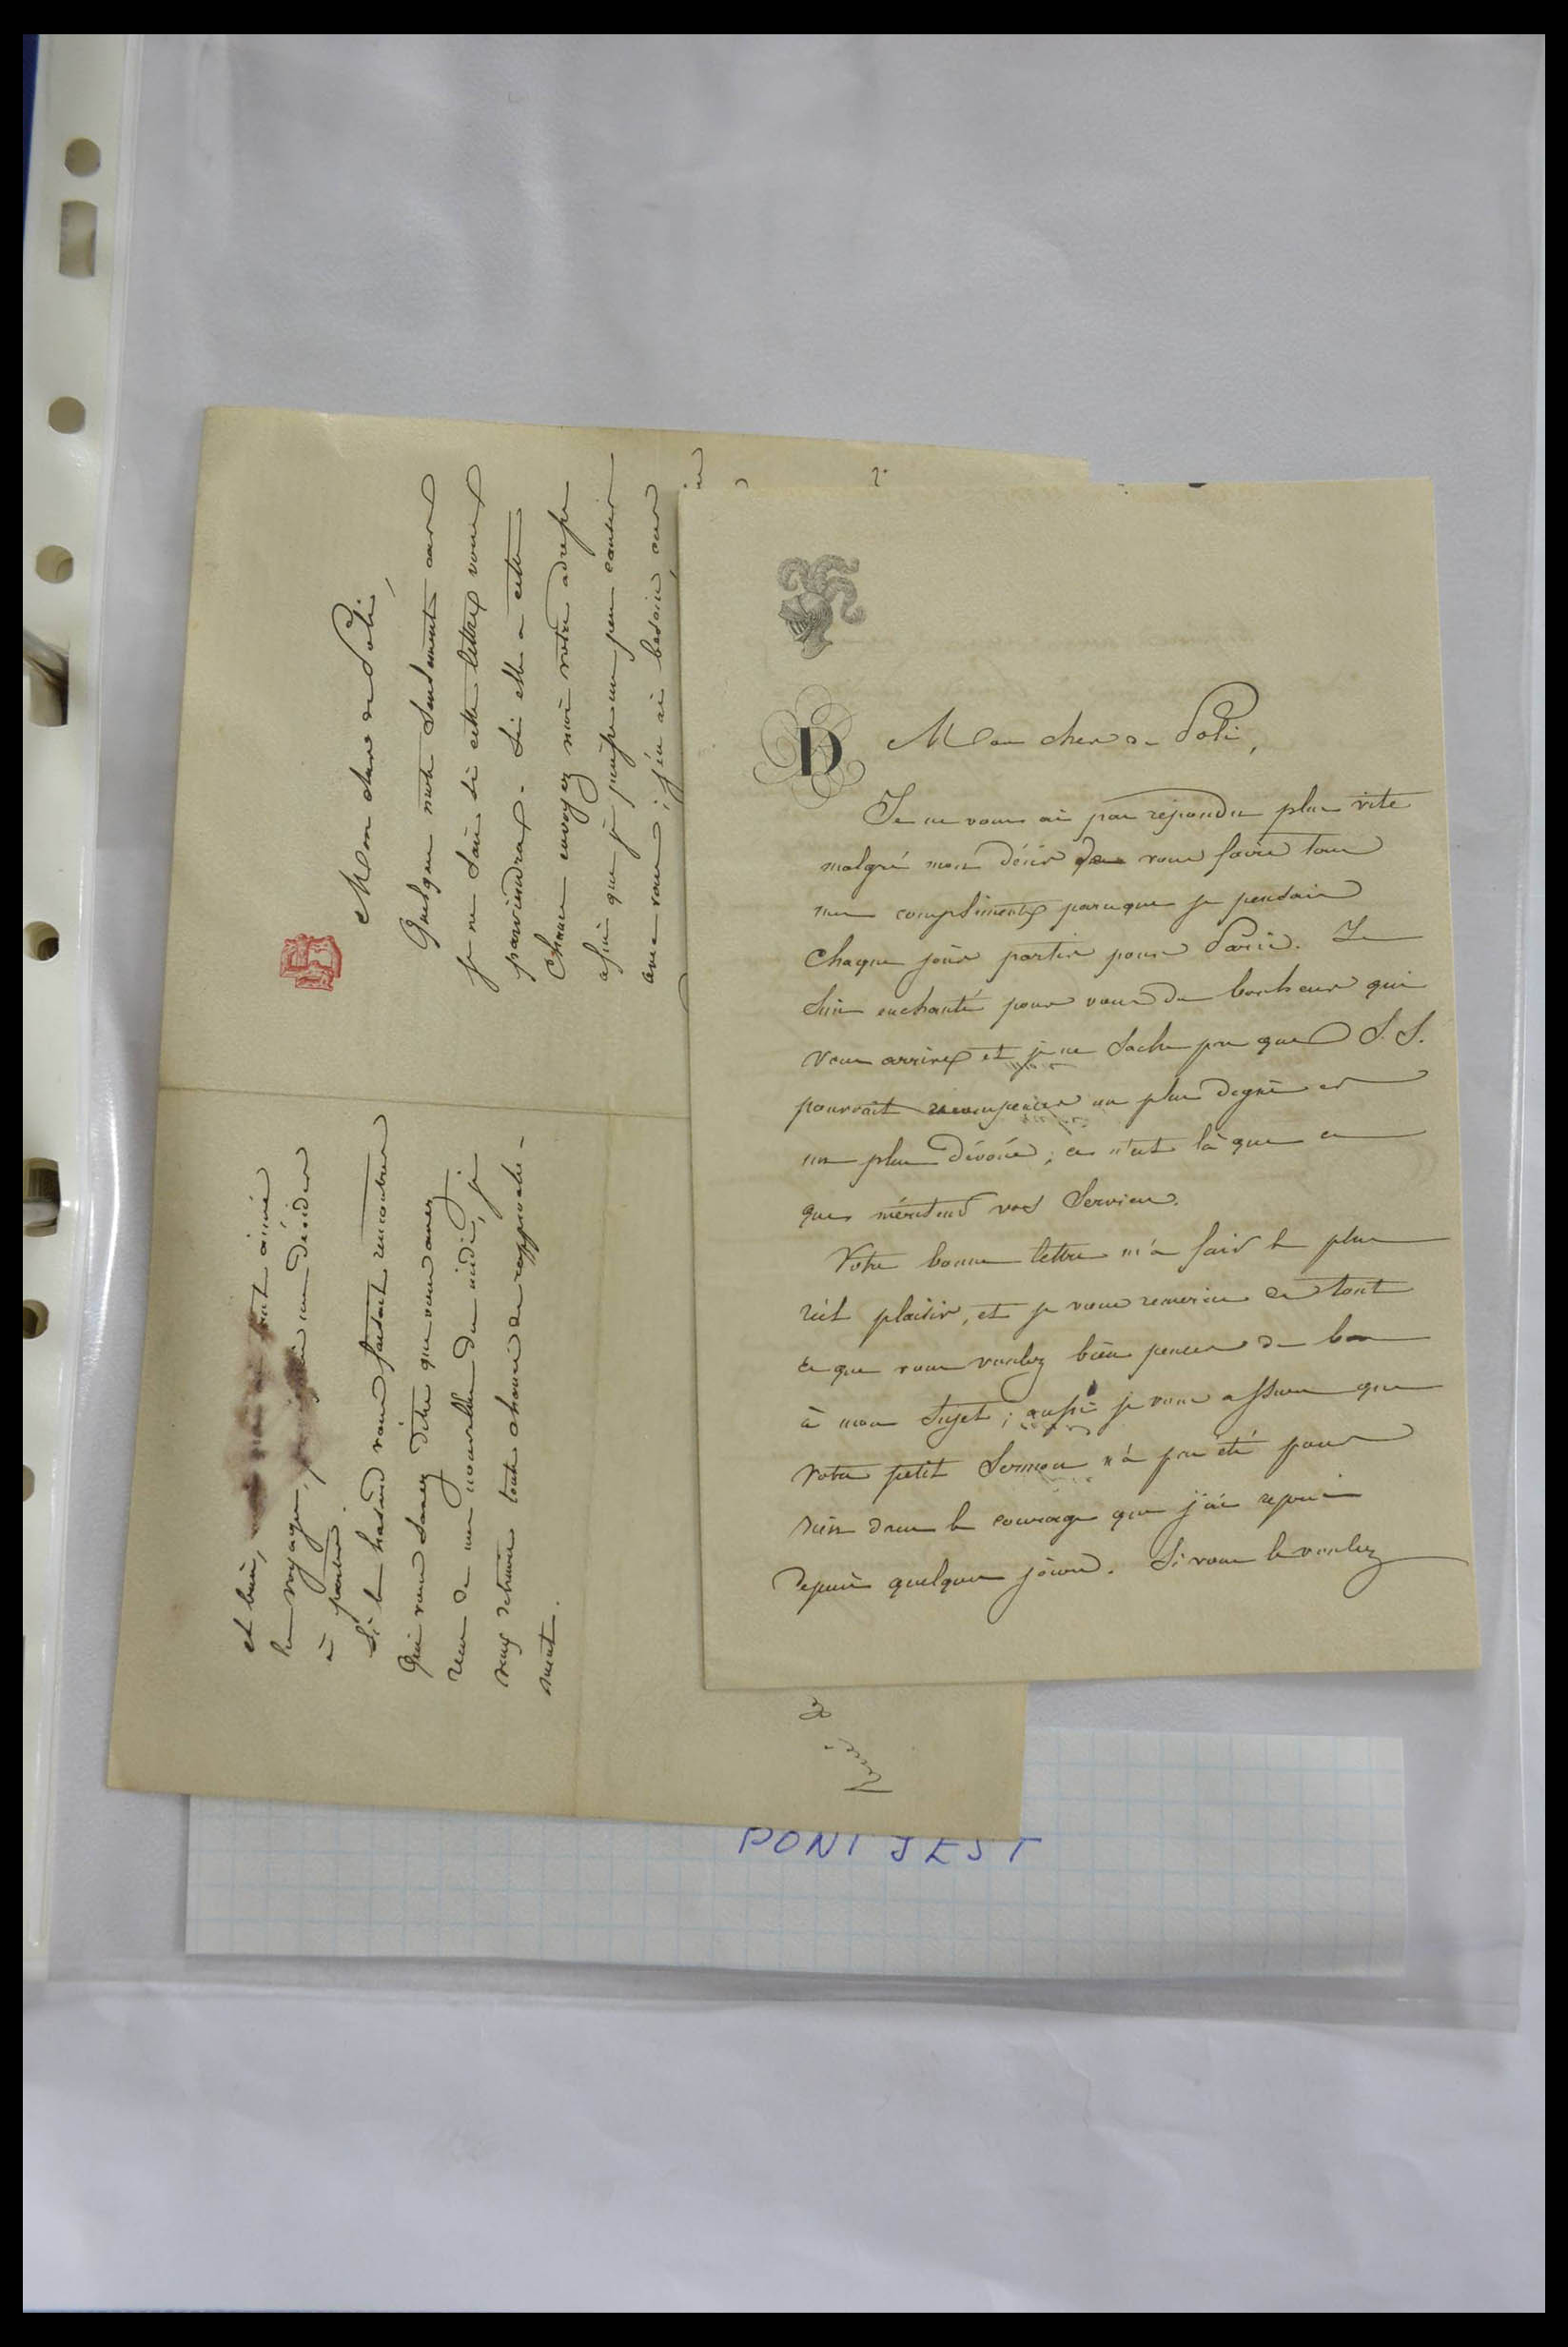 D
Mon cher de Poli,
Je ne vous ai pas repondu plus vite
malgré mon désir de vous faire tous
mes compliments parceque je pensais
chaque jour partir pour Paris. Je
suis enchanté pour vous du bonheur qui
vous arrive et je ne sache pas que S. S.
pourrait recompenser un plus digne et
un plus dévoué; ce n'est là que ce
que méritent vos services.
Votre bonne lettre m'a fait le plus
réel plaisir, et je vous remercie de tout
ce que vous voulez bien penser de bon
à mon sujet; aussi je vous assure que
votre petit sermon n'a pas été pour
rien dans le courage que j'ai repris
depuis quelques jours. Si vous le voulez
Mon cher de Poli,
Quelques mots seulement car
je ne sais si cette lettre vous
parviendra. Si elle a cette
chance envoyez moi votre adresse
afin que je puisse un peu causer
avec vous; j'en ai besoin, car
et bien,
les voyages, me décider
à partir.
Si le hasard vous faisait rencontrer
qui vous savez dites que vous avez
reçu de mes nouvelles du midi, je
veux détruire toute chance de rapproche-
ment.
2.
PONTJEST